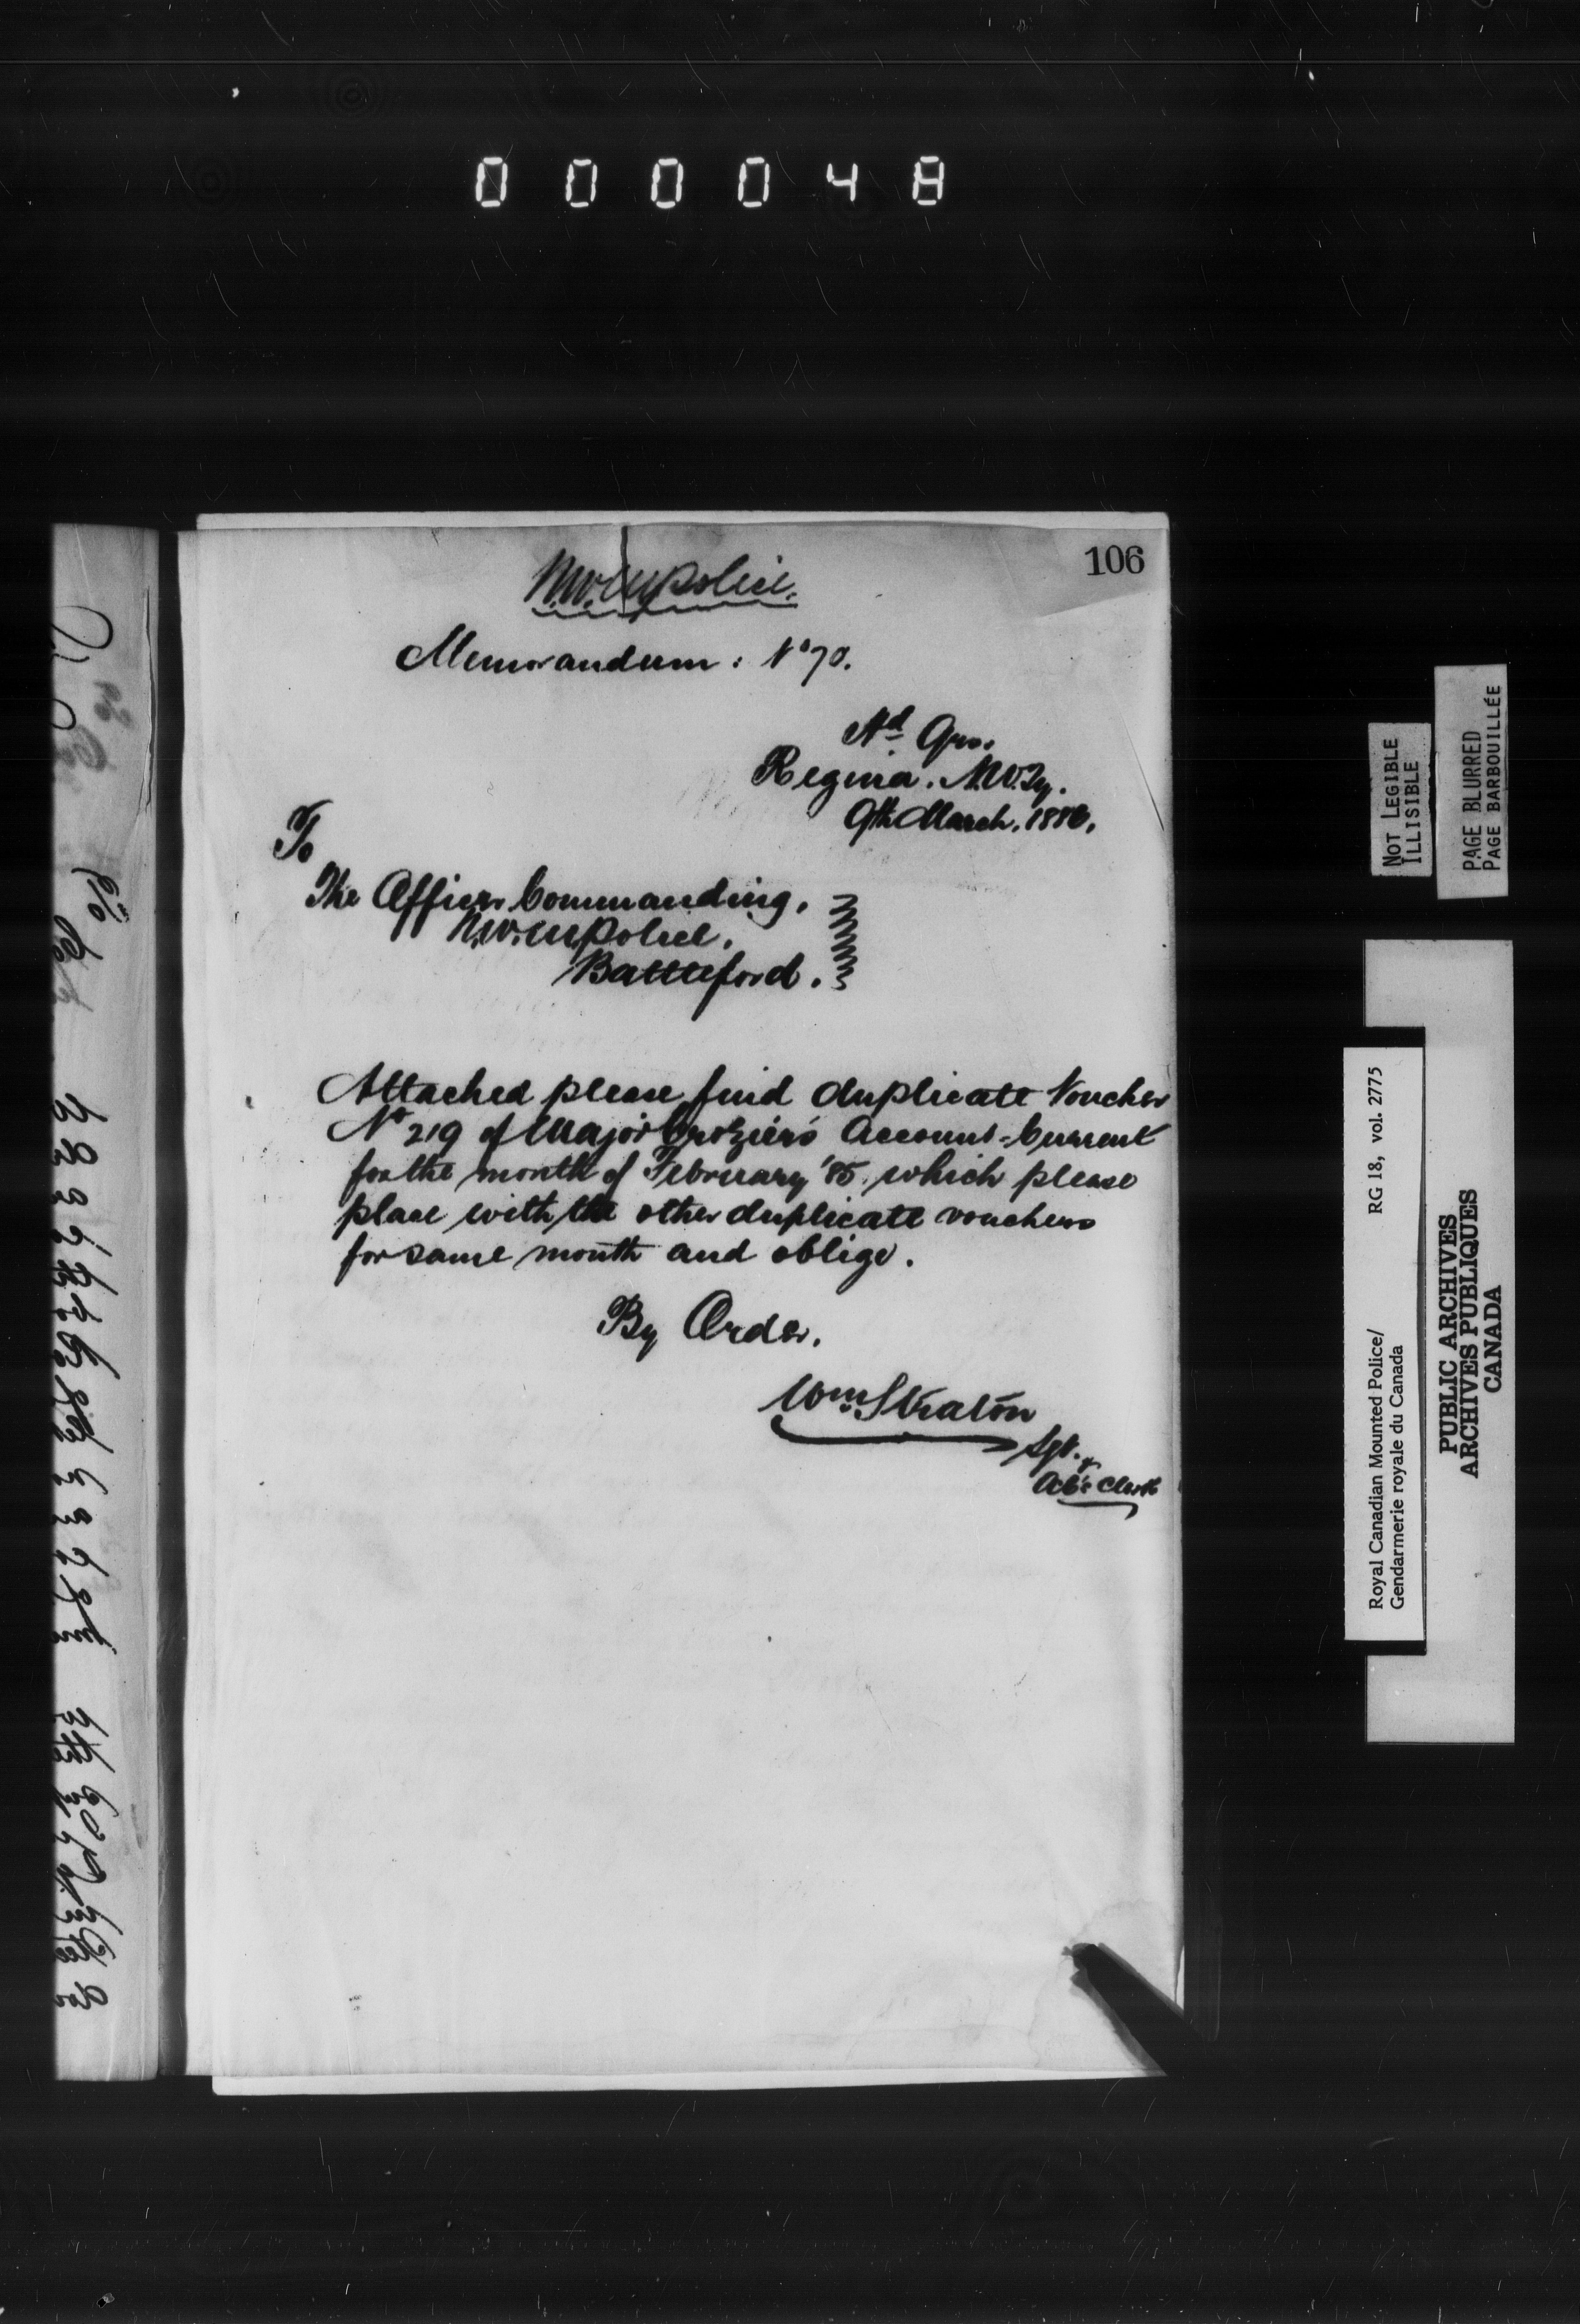 000048
106
N.W.M Police.
Memorandum: No 70.
Hd Qrs.
Regina. N.W.Ty.
9th March. 1886.
To
The Officer Commanding,
N.W.M Police,
Battleford.
Attached please find duplicate Voucher
No 219 of Major Crozier's Account-Current
for the month of February '85. which please
place with the other duplicate vouchers
for same month and oblige.
By Order.
Wm Straton
Sgt.
Clerk
NOT LEGIBLE
ILLISIBLE
PAGE BLURRED
PAGE BARBOUILLÉE
Royal Canadian Mounted Police/ RG 18, vol. 2775
Gendarmerie royale du Canada
PUBLIC ARCHIVES
ARCHIVES PUBLIQUES
CANADA